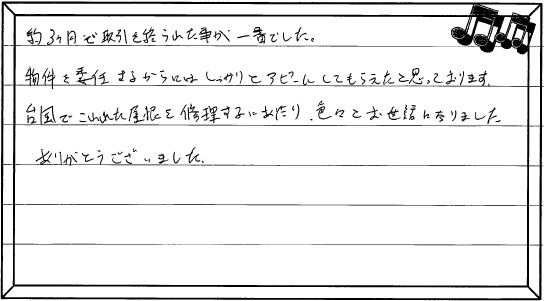 約3ヶ月で取引を終られた事が一番でした。
物件を委任するからにはしっかりとアピールしてもらえたと思っております。
台風でこわれた屋根を修理するにあたり、色々とお世話になりました
ありがとうございました。